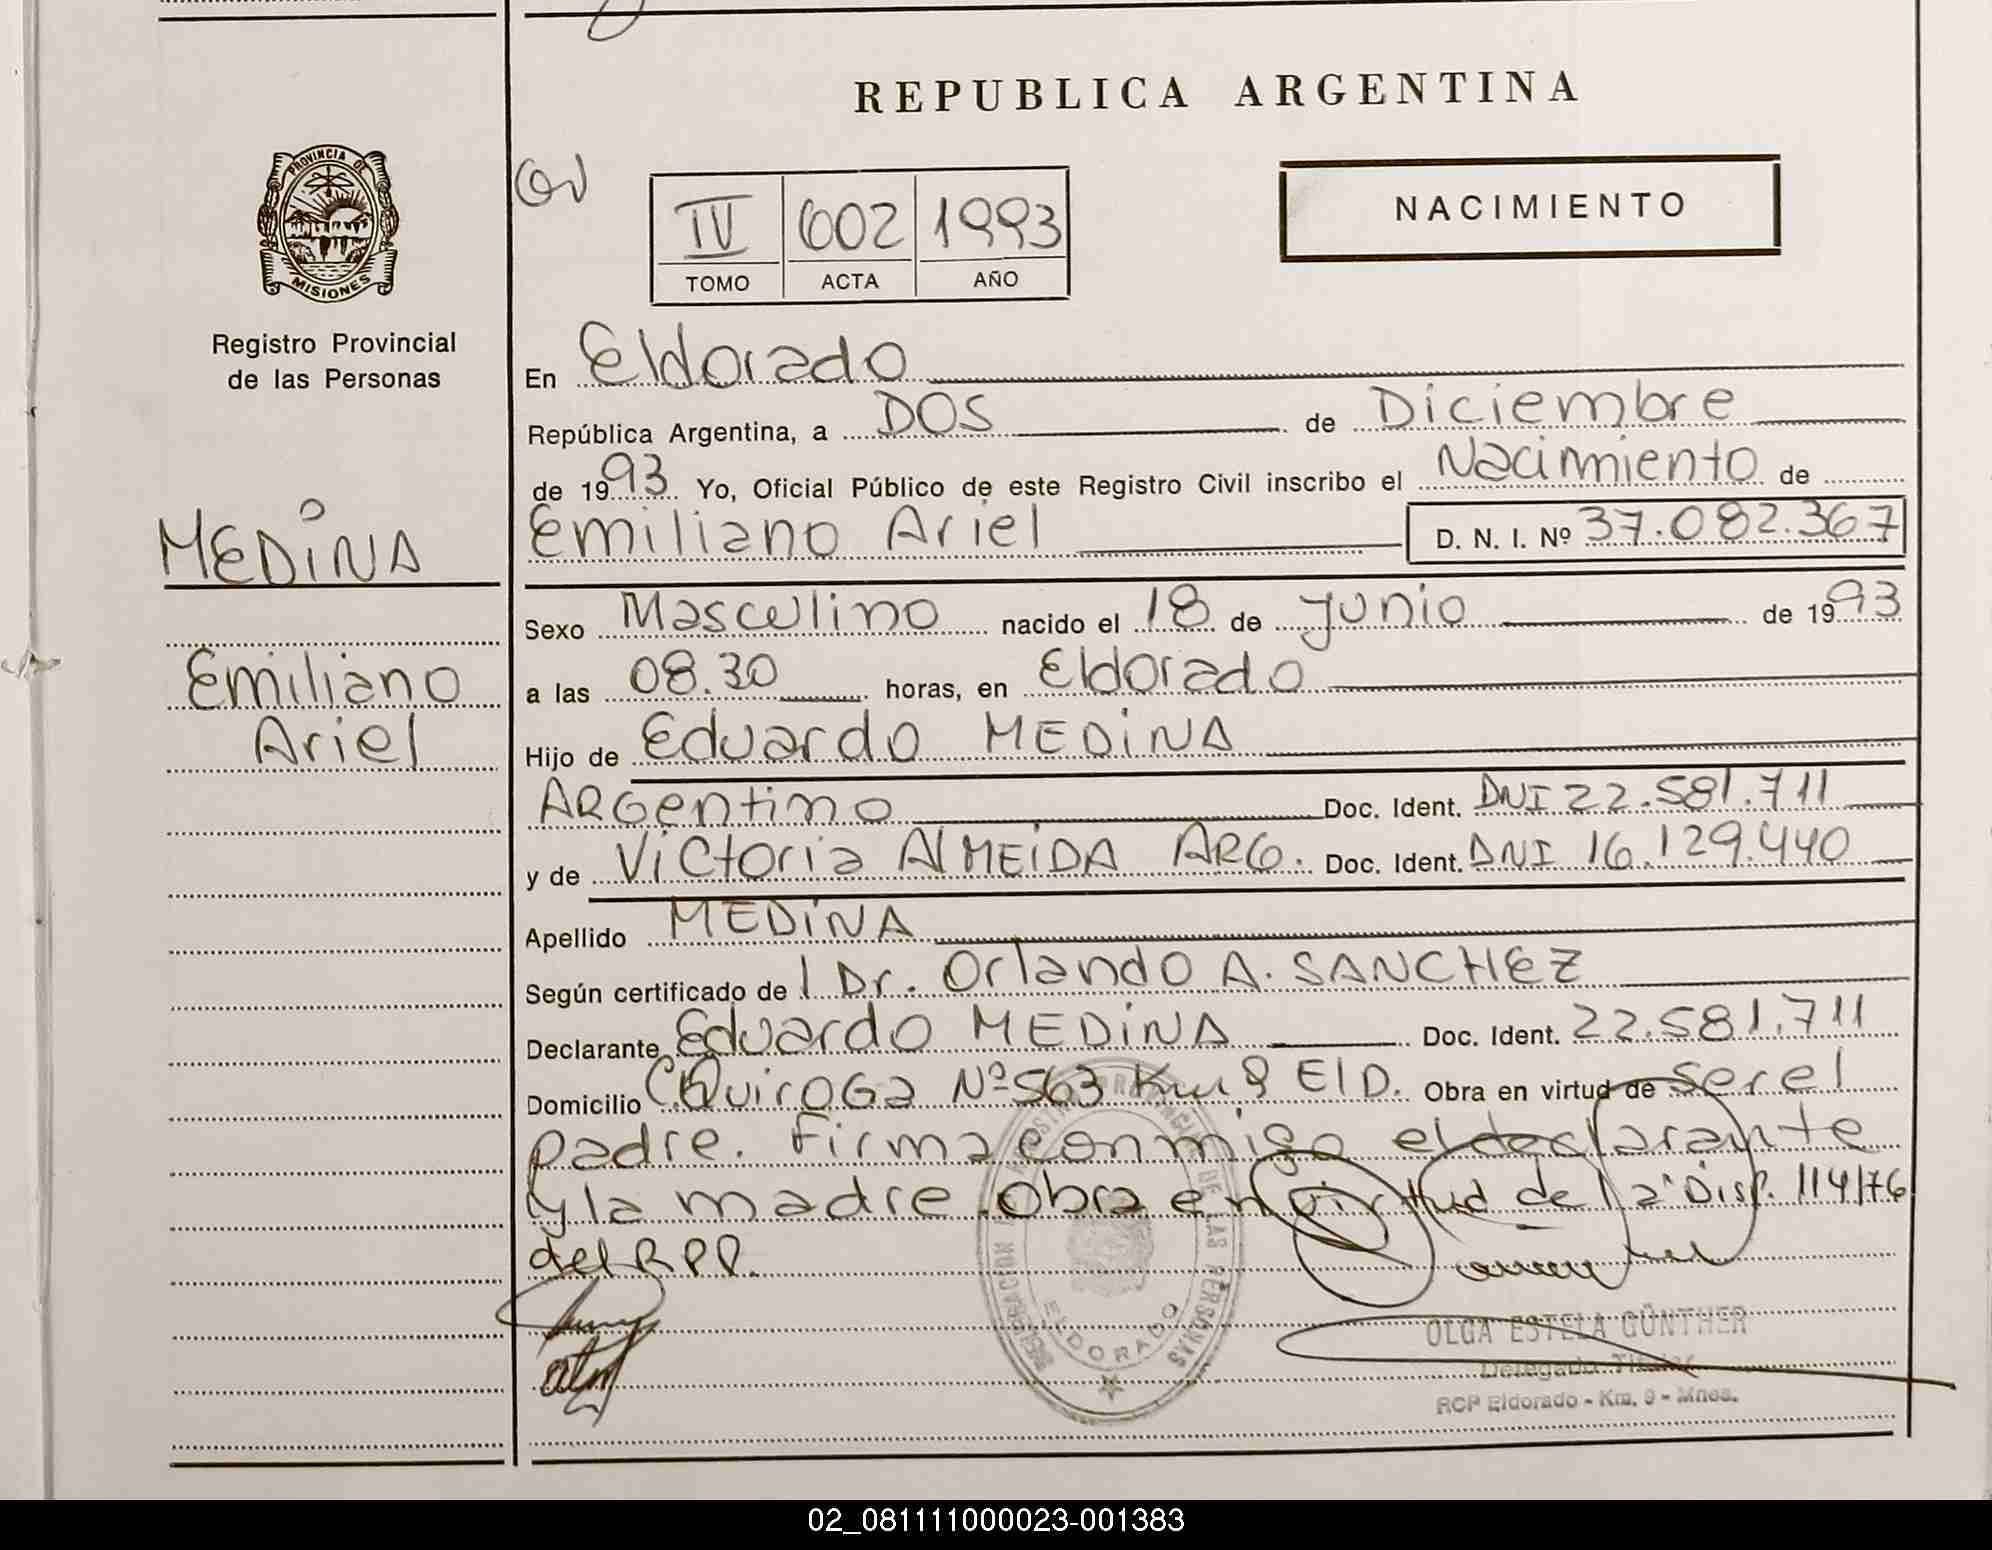 REPUBLICA ARGENTINA
PROVINCIA DE
MISIONES
Registro Provincial
de las Personas
IV 602 1993
TOMO ACTA AÑO
NACIMIENTO
En Eldorado
República Argentina, a DOS de Diciembre
de 1993 Yo, Oficial Público de este Registro Civil inscribo el Nacimiento de
Emiliano Ariel D. N. I. Nº 37.082.367
MEDINA
Emiliano
Ariel
Sexo Masculino nacido el 18 de Junio de 1993
a las 08.30 horas, en Eldorado
Hijo de Eduardo MEDINA
ARGentino Doc. Ident. DNI 22.581.711
y de Victoria AlMEIDA ARG. Doc. Ident. DNI 16.129.440
Apellido MEDINA
Según certificado de l Dr. Orlando A. SANCHEZ
Declarante Eduardo MEDINA Doc. Ident. 22.581.711
Domicilio C. QuiroGa Nº 563 Km 9 ElD. Obra en virtud de ser el
padre. Firma conmigo el declarante
y la madre. Obra en virtud de la Disp. 114/76
del RPP.
DE LAS PERSONAS
ELDORADO
OLGA ESTELA GÜNTHER
Delegado Titular
RCP Eldorado - Km. 9 - Mnes.
02_081111000023-001383